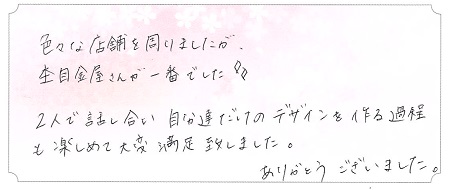 色々な店舗を周りましたが、
杢目金屋さんが一番でした
2人で話し合い自分達だけのデザインを作る過程
も楽しめて大変満足致しました。
ありがとうございました。